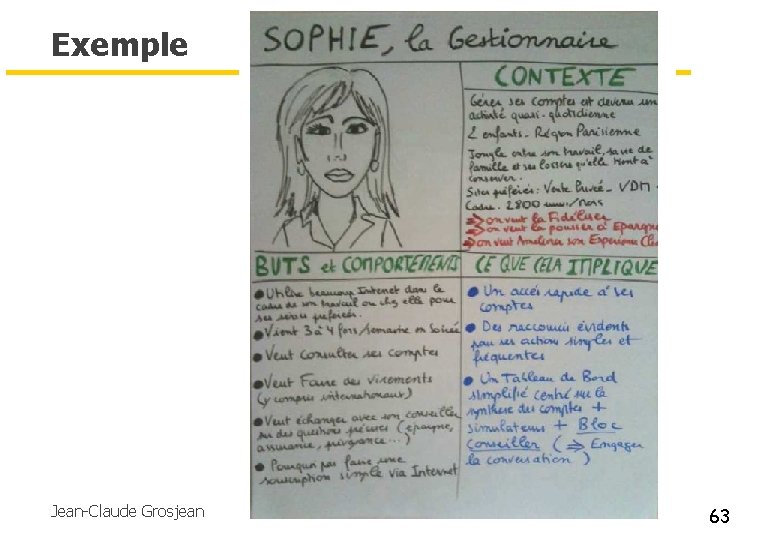 Exemple
SOPHIE, la Gestionnaire
CONTEXTE
Gérer ses comptes est devenu un
activité quasi-quotidienne
2 enfants - Région Parisienne
Jongle entre son travail, sa vie de
famille et ses loisirs qu'elle tient à
conserver.
Sites préférés : Vente Privée - VDM
Cadre - 2800 euros/mois
⇒ on veut la Fidéliser
⇒ on veut la pousser à Epargne
⇒ on veut Améliorer son Expérience Cli
BUTS et COMPORTEMENTS
● Utilise beaucoup Internet dans le
cadre de son travail ou chez elle pour
ses sites préférés.
● Vient 3 à 4 fois/semaine en soirée
● Veut consulter ses comptes
● Veut Faire des virements
(y compris internationaux)
● Veut échanger avec son conseiller
sur des questions précises (épargne,
assurance, prévoyance...)
● Pourquoi pas faire une
souscription simple via Internet
CE QUE CELA IMPLIQUE
● Un accès rapide à ses
comptes
● Des raccourcis évidents
pour ses actions simples et
fréquentes
● Un Tableau de Bord
simplifié centré sur la
synthèse des comptes +
simulateurs + Bloc
Conseiller (⇒ Engager
la conversation)
Jean-Claude Grosjean
63